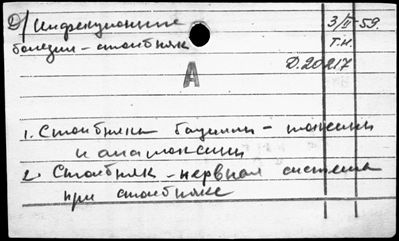 Д/ Инфекционные 3/II-59.
болезни – столбняк Т.Н.
Д.20217
А
1. Столбняка бациллы – токсины
и анатоксины
2. Столбняк – нервная система
при столбняке